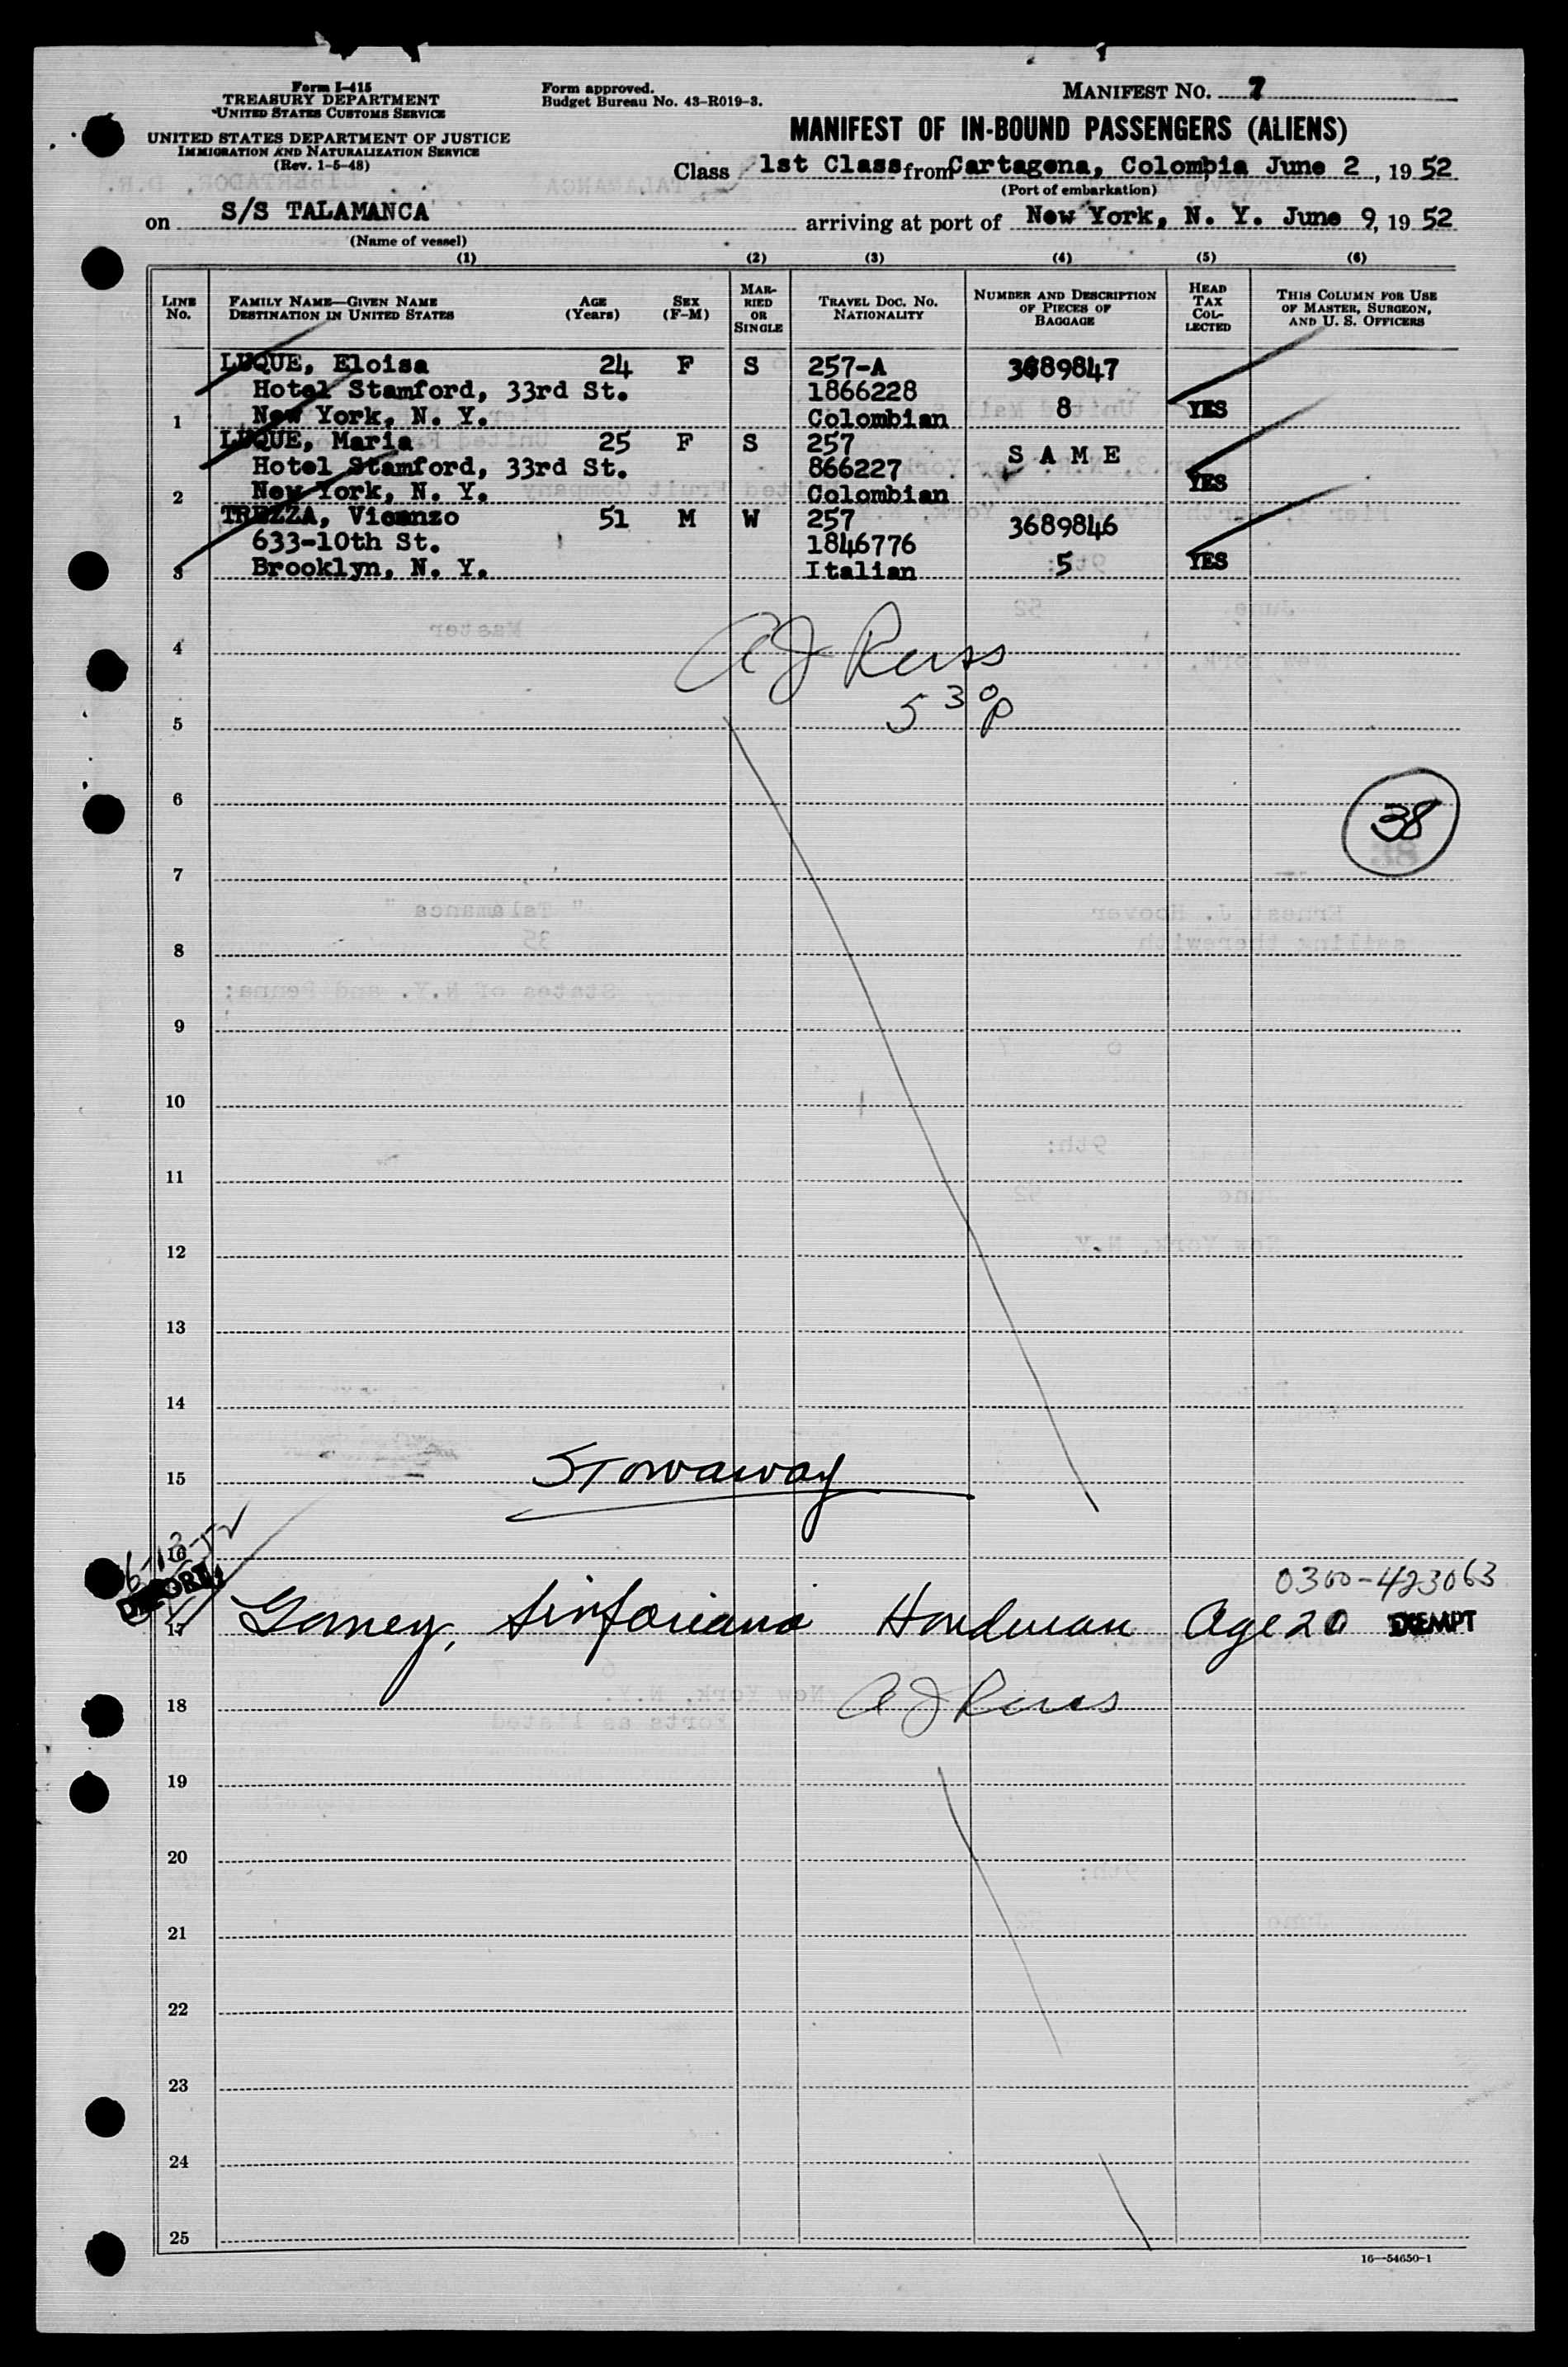 Form I-415
TREASURY DEPARTMENT
UNITED STATES CUSTOMS SERVICE
UNITED STATES DEPARTMENT OF JUSTICE
IMMIGRATION AND NATURALIZATION SERVICE
(Rev. 1-5-48)
Form approved.
Budget Bureau No. 43-R019-3.
MANIFEST NO. 7
MANIFEST OF IN-BOUND PASSENGERS (ALIENS)
Class 1st Class from Cartagena, Colombia June 2, 1952
(Port of embarkation)
on S/S TALAMANCA arriving at port of New York, N. Y. June 9, 1952
(Name of vessel)
(1) (2) (3) (4) (5) (6)
LINE No. FAMILY NAME—GIVEN NAME DESTINATION IN UNITED STATES AGE (Years) SEX (F-M) MARRIED OR SINGLE TRAVEL DOC. NO. NATIONALITY NUMBER AND DESCRIPTION OF PIECES OF BAGGAGE HEAD TAX COLLECTED THIS COLUMN FOR USE OF MASTER, SURGEON, AND U. S. OFFICERS
LUQUE, Eloisa 24 F S 257-A 3689847
Hotel Stamford, 33rd St. 1866228
1 New York, N. Y. Colombian 8 YES
LUQUE, Maria 25 F S 257 SAME
Hotel Stamford, 33rd St. 866227
2 New York, N. Y. Colombian YES
TREZZA, Vicenzo 51 M W 257 3689846
633-10th St. 1846776
3 Brooklyn, N. Y. Italian 5 YES
4 A J Reiss
5 5 30 p
6 38
7
8
9
10
11
12
13
14
15 Stowaway
16 6-13-52
0300-423063
17 Gomez, Sinforiano Honduran Age 20 EXEMPT
18 A J Reiss
19
20
21
22
23
24
25
16—54650-1